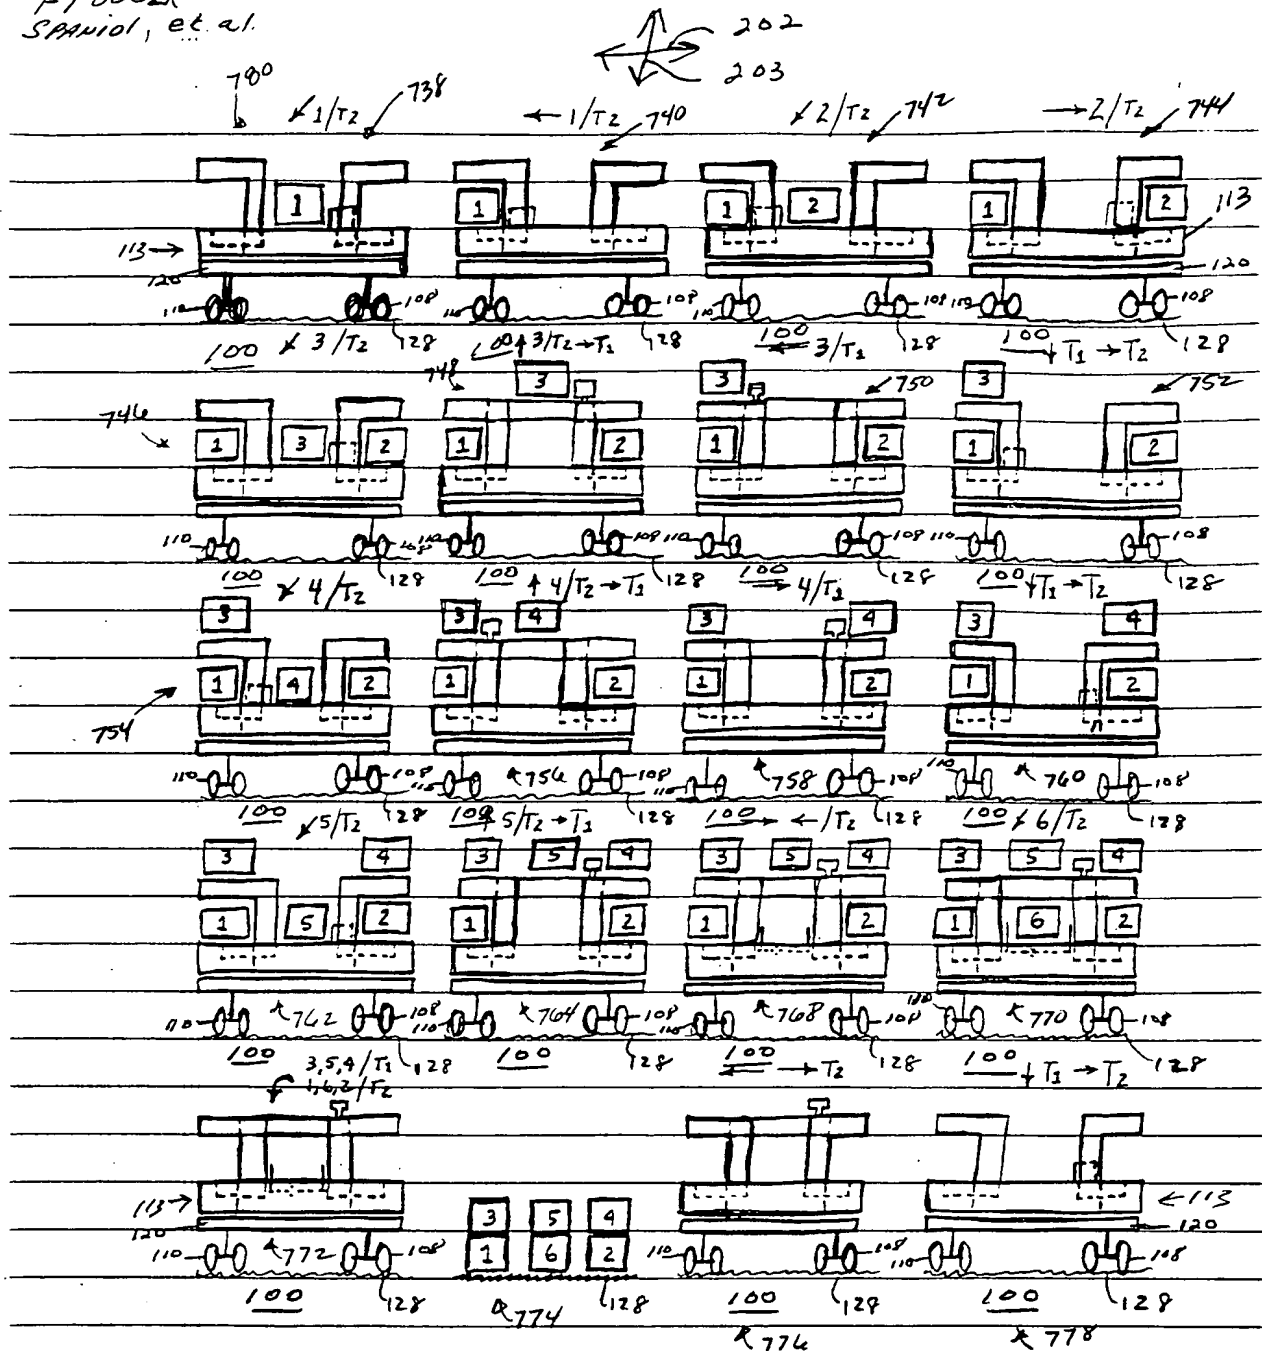 SPANIOL, et. al.
202
203
780 ↙1/T2 738 ←1/T2 740 ↙2/T2 742 →2/T2 744
1 1 1 2 1 2
113→ 113
120 120
110 108 110 108 110 108 110 108
100 ↙3/T2 128 100 ↑3/T2→T1 128 100 ←3/T1 128 100 ↓T1→T2 128
3 3 3
746 748 750 752
1 3 2 1 2 1 2 1 2
110 108 110 108 110 108 110 108
100 ↙4/T2 128 100 ↑4/T2→T1 128 100 →4/T1 128 100 ↓T1→T2 128
3 3 4 3 4 3 4
1 4 2 1 2 1 2 1 2
754
110 108 110 756 108 110 758 108 110 760 108
100 ↙5/T2 128 100 ↑5/T2→T1 128 100 → ←/T2 128 100 ↙6/T2 128
3 4 3 5 4 3 5 4 3 5 4
1 5 2 1 2 1 2 1 6 2
110 762 108 110 764 108 110 768 108 110 770 108
100 3,5,4/T1 128 100 128 100 ← →T2 128 100 ↓T1→T2 128
1,6,2/T2
113→ ←113
3 5 4
120 120
110 772 108 1 6 2 110 108 110 108
100 128 774 128 100 128 100 128
776 778